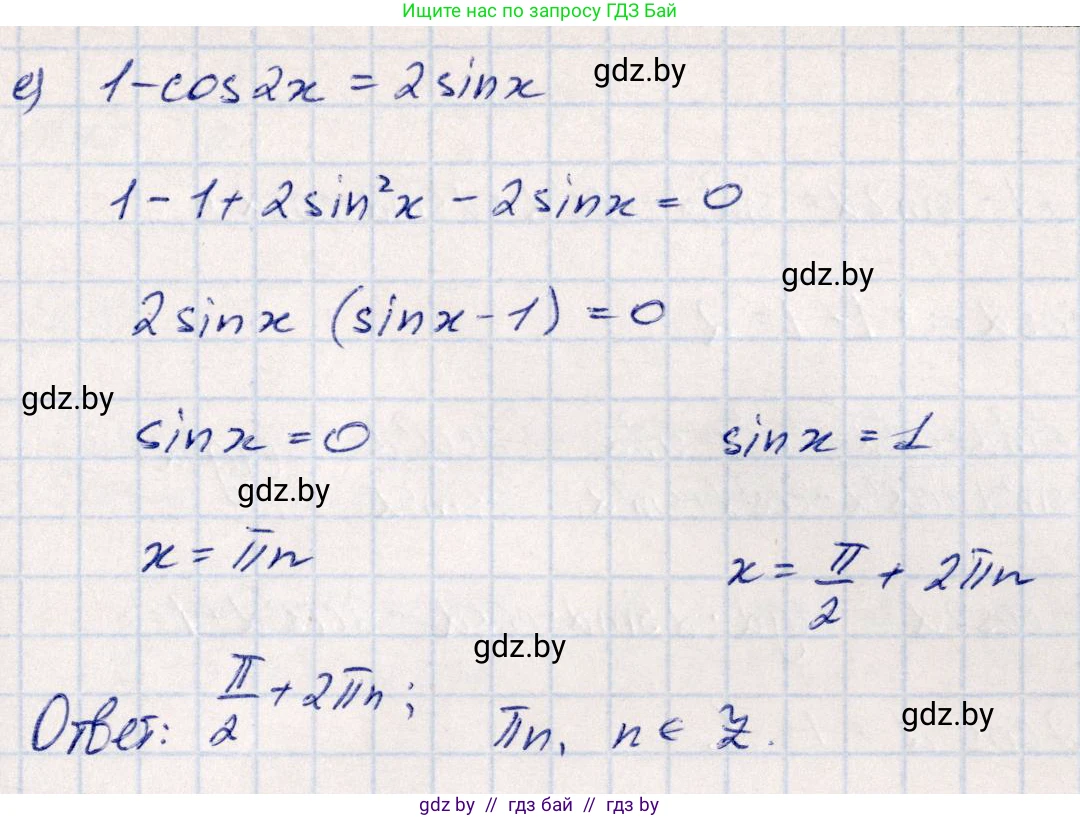 Ищите нас по запросу ГДЗ Бай
е) 1-cos2x = 2sinx gdz.by
1 - 1 + 2sin²x - 2sinx = 0
gdz.by
2sinx (sinx - 1) = 0
gdz.by
sinx = 0 sinx = 1
gdz.by
x = πn x = π/2 + 2πn
gdz.by
Ответ: π/2 + 2πn; πn, n ∈ Z. gdz.by
gdz by // гдз бай // гдз by